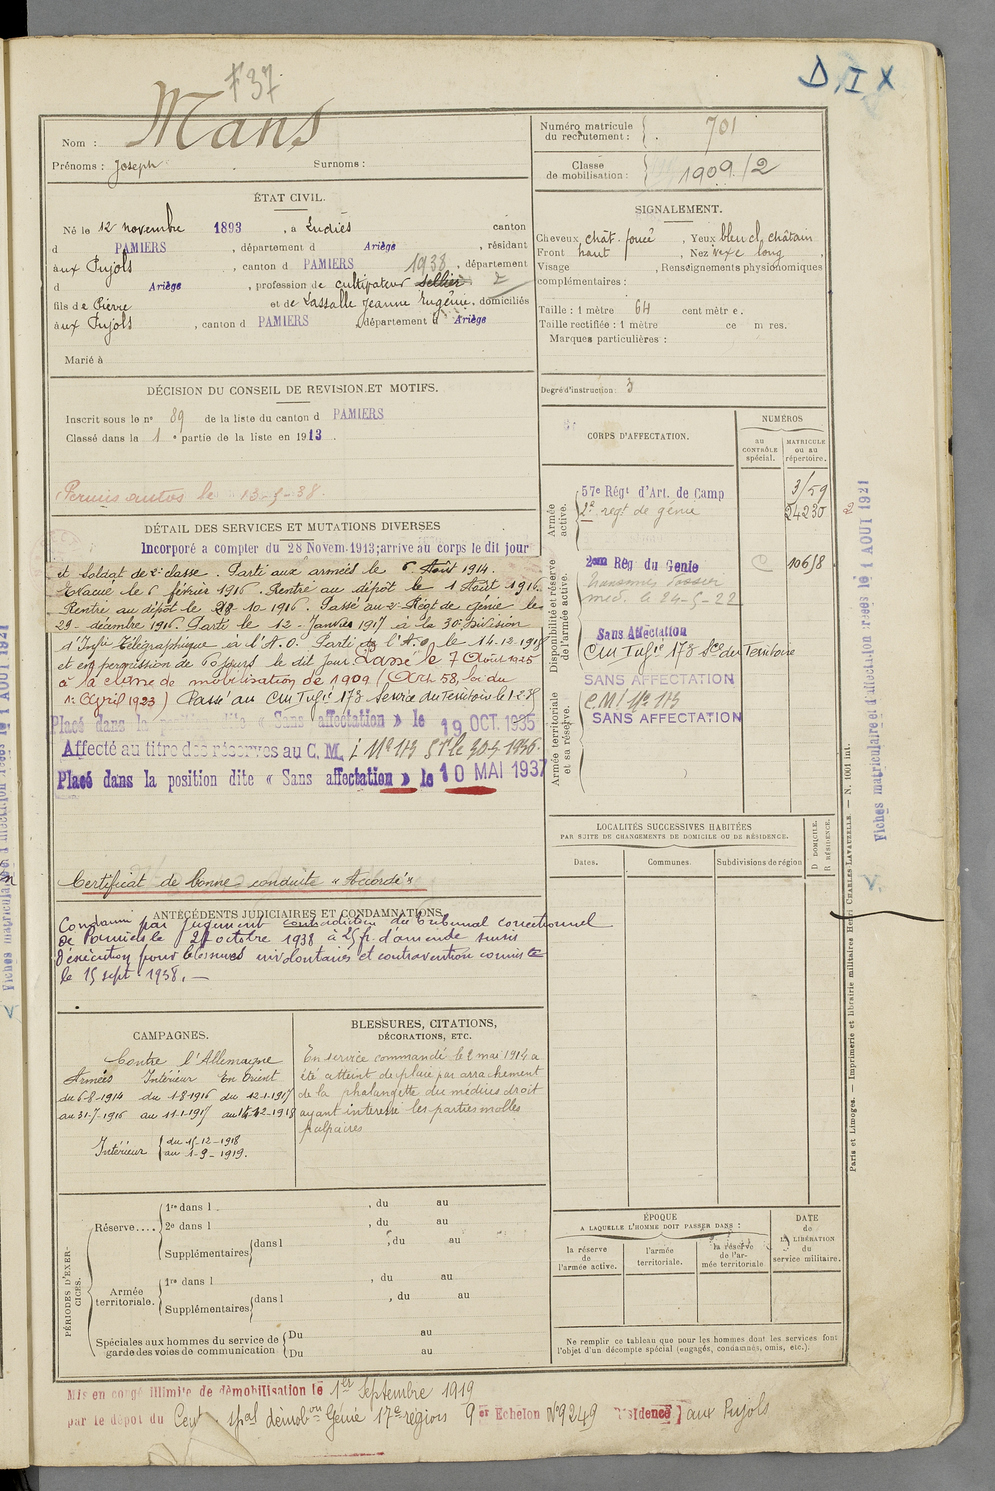 F 37
D I X
Nom : Mans
Prénoms : Joseph Surnoms :
Numéro matricule du recrutement : 701
Classe de mobilisation : 1909/2
ÉTAT CIVIL.
Né le 12 novembre 1893, à Ludiès canton
d PAMIERS, département d Ariège, résidant
aux Pujols, canton d PAMIERS 1938, département
d Ariège, profession de cultivateur sellier 2
fils de Pierre et de Lassalle Jeanne Eugénie, domiciliés
aux Pujols, canton d PAMIERS, département d Ariège
Marié à
SIGNALEMENT.
Cheveux chât. foncé, Yeux bleu cl. châtain
Front haut, Nez vexe long,
Visage , Renseignements physionomiques
complémentaires :
Taille : 1 mètre 64 centimètre.
Taille rectifiée : 1 mètre ce m res.
Marques particulières :
Degré d'instruction : 3
DÉCISION DU CONSEIL DE REVISION ET MOTIFS.
Inscrit sous le n° 89 de la liste du canton d PAMIERS
Classé dans la 1e partie de la liste en 1913.
Permis autos le 13-5-38.
DÉTAIL DES SERVICES ET MUTATIONS DIVERSES
Incorporé a compter du 28 Novem. 1913; arrive au corps le dit jour
et Soldat de 2e classe. Parti aux armées le 6 Août 1914.
Evacué le 6 février 1916. Rentré au dépôt le 1 Août 1916.
Rentré au dépôt le 28 10 1916. Passé au 2e Régt de génie le
29 décembre 1916. Parti le 12 Janvier 1917 à la 30e Division
d'Infie Télégraphique à l'A.O. Parti de l'A.O. le 14.12.1918
et en permission de 60 jours le dit jour. Passé le 7 Août 1925
à la classe de mobilisation de 1909 (Art 58, loi du
1er Avril 1923) Passé au CM Infie 173 Service du Territoire le 1-2-35
Placé dans la position dite « Sans affectation » le 19 OCT. 1935
Affecté au titre des réserves au C. M. i N° 173 ST le 30-4 1936.
Placé dans la position dite « Sans affectation » le 10 MAI 1937
Certificat de bonne conduite « Accordé »
CORPS D'AFFECTATION.
NUMÉROS
au CONTRÔLE spécial.
MATRICULE ou au répertoire.
Armée active.
57e Régt d'Art. de Camp 3/59
2e régt de génie 24230
Disponibilité et réserve de l'armée active.
2eme Rég du Genie C 10658
med. le 24-5-22
Sans Affectation
CM Infie 173 Sce du Territoire
SANS AFFECTATION
Armée territoriale et sa réserve.
C.M.I N° 173
SANS AFFECTATION
LOCALITÉS SUCCESSIVES HABITÉES
PAR SUITE DE CHANGEMENTS DE DOMICILE OU DE RÉSIDENCE.
Dates. Communes. Subdivisions de région D DOMICILE. R RÉSIDENCE.
ANTÉCÉDENTS JUDICIAIRES ET CONDAMNATIONS
Condamné par jugement contradictoire du tribunal correctionnel
de Pamiers le 27 octobre 1938 à 25 fr. d'amende sursis
d'exécution pour blessures involontaires et contravention commise
le 15 sept 1938. —
CAMPAGNES.
Contre l'Allemagne
Armées Intérieur En Orient
du 6-8-1914 du 1-8-1916 du 12-1-1917
au 31-7-1916 au 11-1-1917 au 14-12-1918
Intérieur du 15-12-1918
au 1-9-1919.
BLESSURES, CITATIONS,
DÉCORATIONS, ETC.
En service commandé le 2 mai 1914 a
été atteint de plaie par arrachement
de la phalangette du médius droit
ayant intéressé les parties molles
palpaires
PÉRIODES D'EXERCICES.
Réserve.... 1re dans l , du au
2e dans l , du au
Supplémentaires dans l , du au
Armée territoriale. 1re dans l , du au
Supplémentaires dans l , du au
Spéciales aux hommes du service de garde des voies de communication Du au
Du au
ÉPOQUE
A LAQUELLE L'HOMME DOIT PASSER DANS :
la réserve de l'armée active.
l'armée territoriale.
la réserve de l'armée territoriale
DATE de LA LIBÉRATION du service militaire.
Ne remplir ce tableau que pour les hommes dont les services font
l'objet d'un décompte spécial (engagés, condamnés, omis, etc.).
Mis en congé illimité de démobilisation le 1er Septembre 1919
par le dépôt du Cent spal démobon Génie 17e région 9er Echelon N° 9249 Résidence aux Pujols
Paris et Limoges. — Imprimerie et librairie militaires Henri CHARLES-LAVAUZELLE. — N. 1001 int.
Fiches matriculaire et d'affectation créées le 1 AOUT 1921